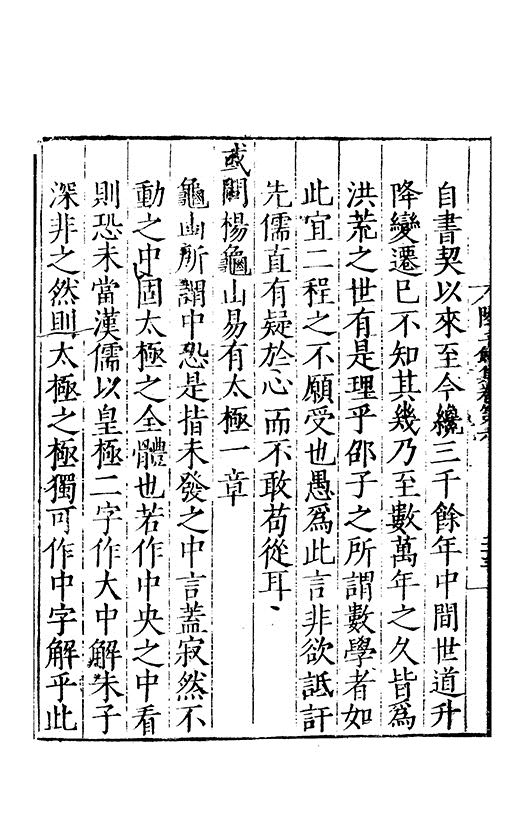 自書契以來至今纔三千餘年中間世道升
降變遷已不知其幾乃至數萬年之久皆爲
洪荒之世有是理乎邵子之所謂數學者如
此宜二程之不願受也愚爲此言非欲詆訐
先儒直有疑於心而不敢苟從耳
或問楊龜山易有太極一章
龜山所謂中恐是指未發之中言蓋寂然不
動之中固太極之全體也若作中央之中看
則恐未當漢儒以皇極二字作大中解朱子
深非之然則太極之極獨可作中字解乎此